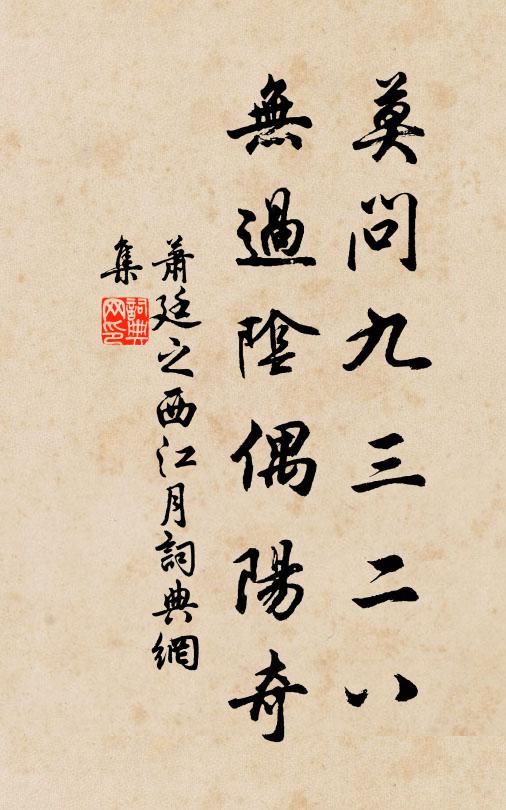 莫問九三二八
無過陰偶陽奇
蕭廷之西江月詞典網
集
詞典
网印